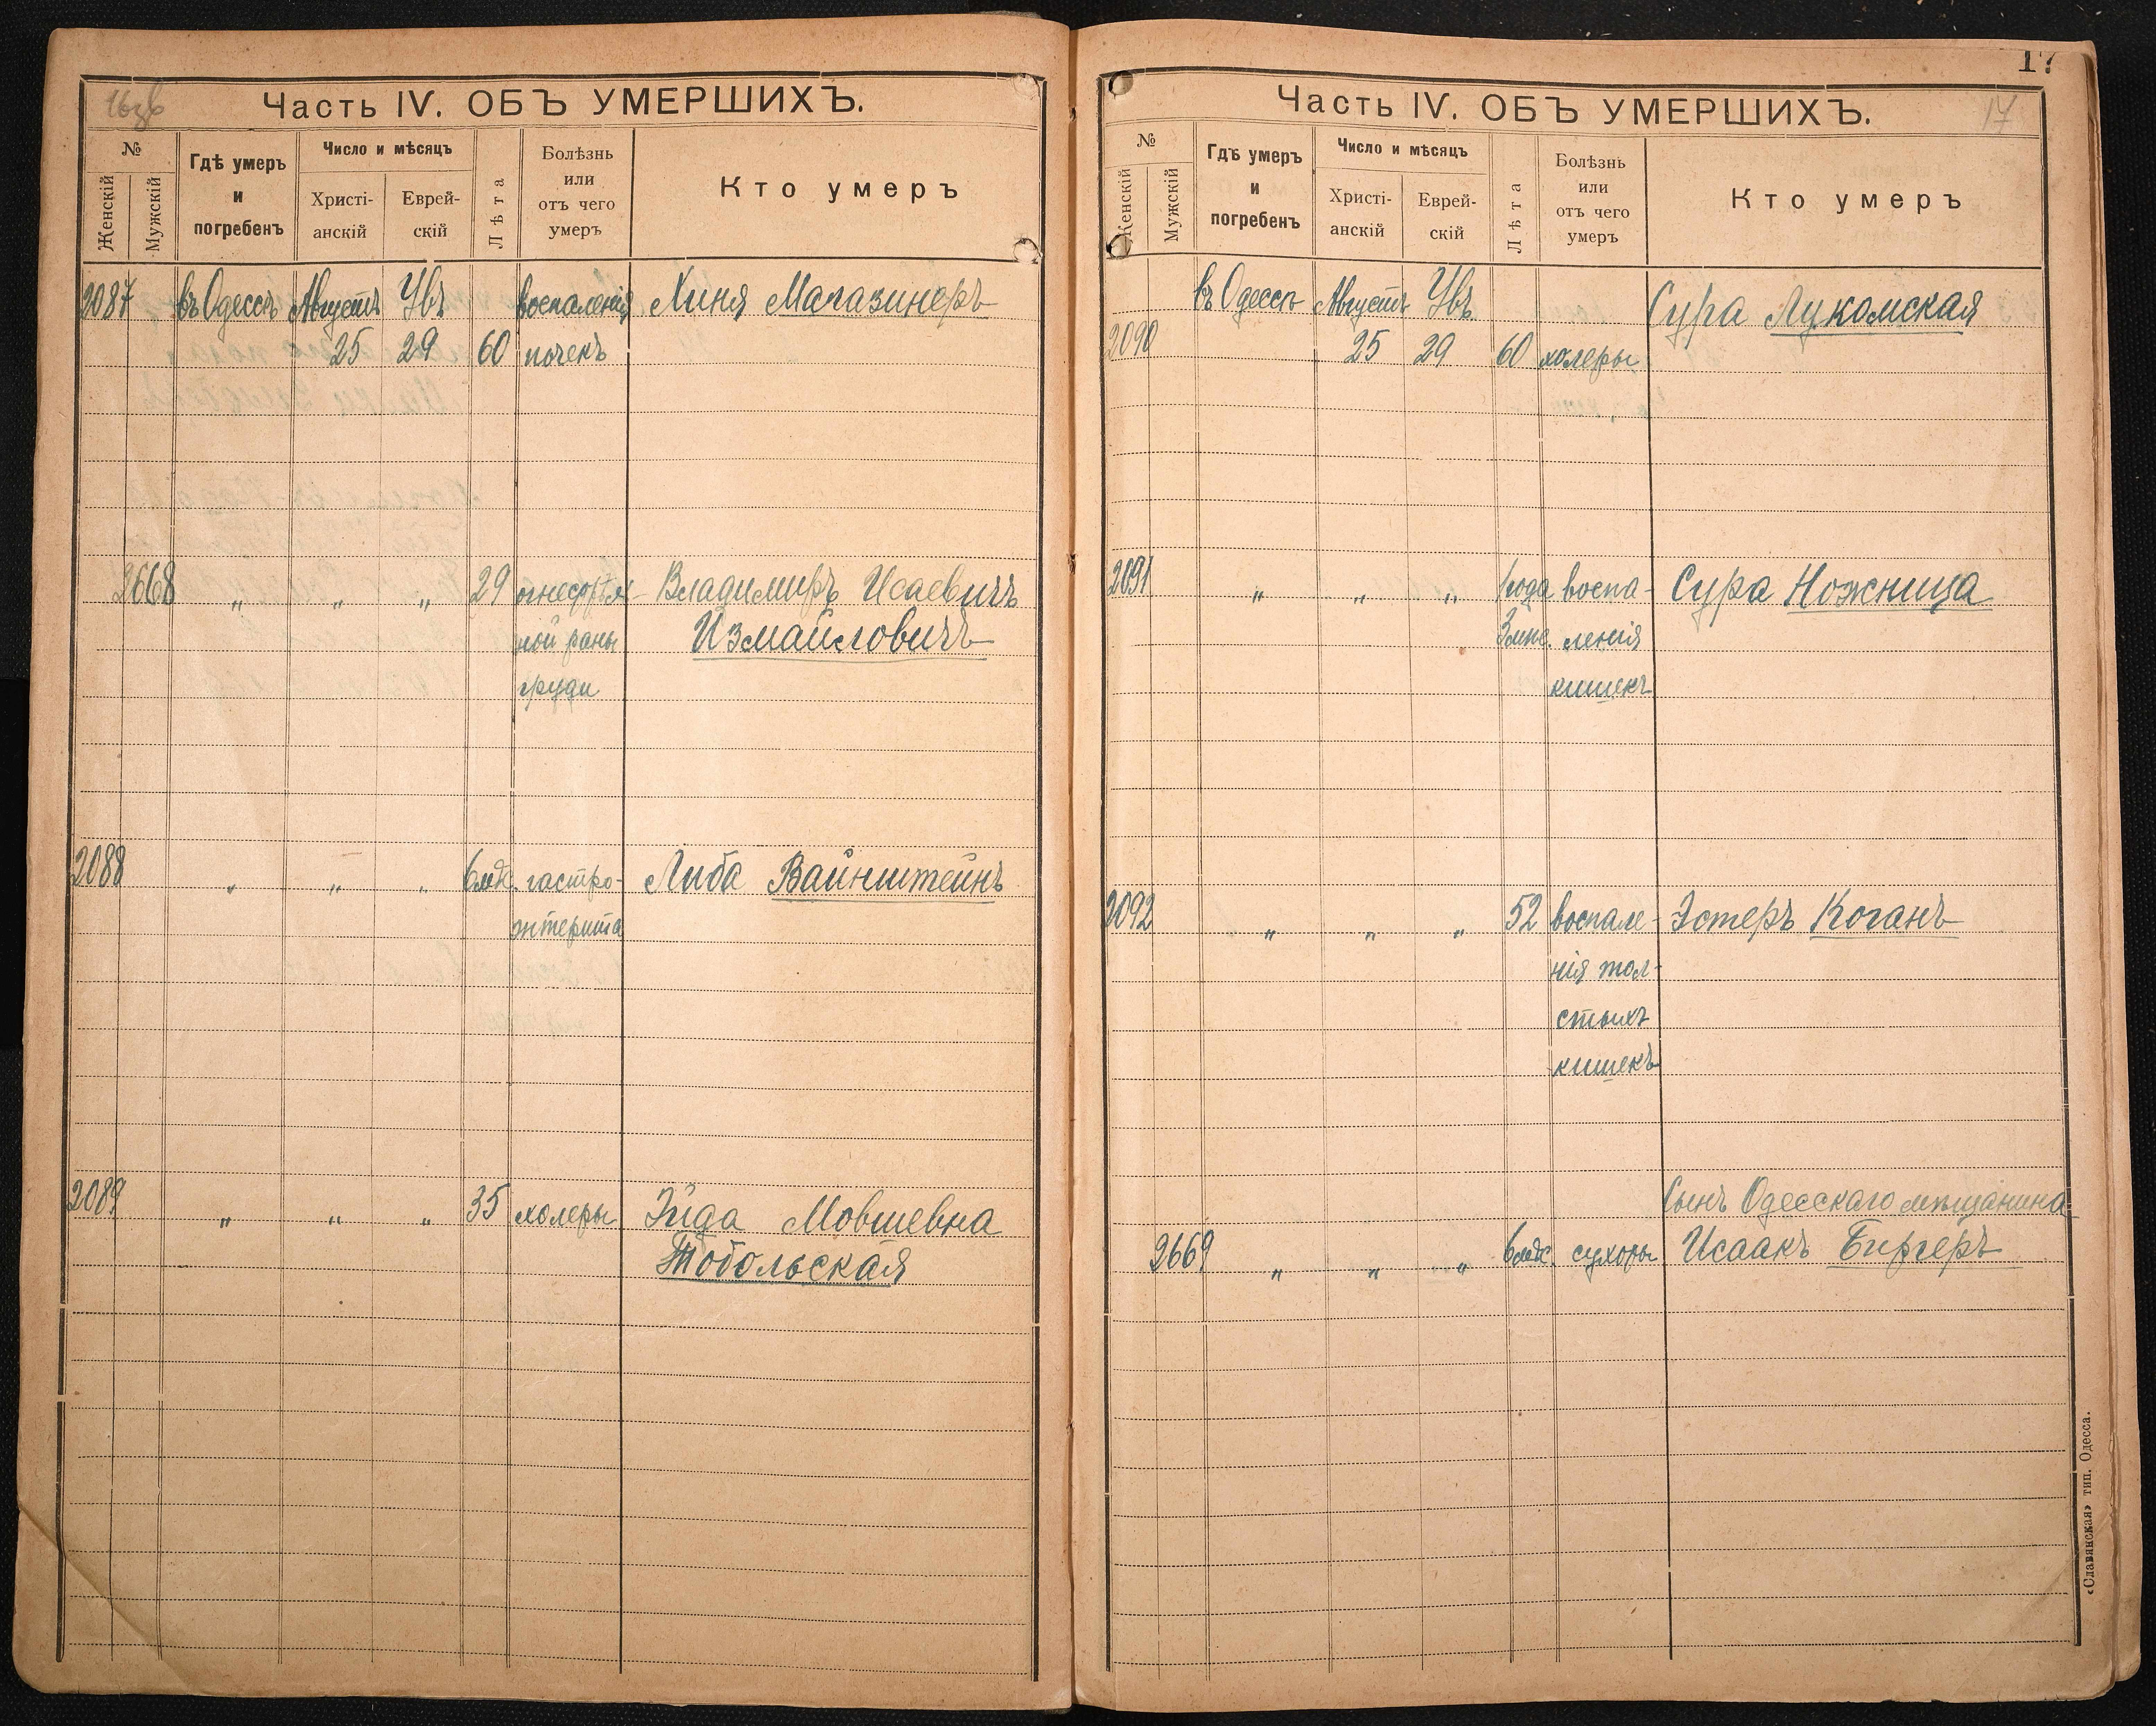 Часть IV. ОБЪ УМЕРШИХЪ.
№
Женскій
Мужскій
Гдѣ умеръ
и
погребенъ
Число и мѣсяцъ
Христі-
анскій
Еврей-
скій
Лѣта
Болѣзнь
или
отъ чего
умеръ
Кто умеръ
2087 въ Одессѣ Августъ Увъ воспаленія Хиня Магазинеръ
25 29 60 почекъ
2668 „ „ „ 29 огнестрѣль- Владимиръ Исаевичъ
ной раны Измайловичъ
груди
2088 „ „ „ 6 мѣс. гастро- Либа Вайнштейнъ
энтерита
2089 „ „ „ 35 холеры Эйда Мовшевна
Тобольская
17
Часть IV. ОБЪ УМЕРШИХЪ. 17
№
Женскій
Мужскій
Гдѣ умеръ
и
погребенъ
Число и мѣсяцъ
Христі-
анскій
Еврей-
скій
Лѣта
Болѣзнь
или
отъ чего
умеръ
Кто умеръ
въ Одессѣ Августъ Увъ Сура Лукомская
2090 25 29 60 холеры
2091 „ „ „ 1 года воспа- Сура Ножница
3 мѣс. ленія
кишекъ
2092 „ „ „ 52 воспале- Эстеръ Коганъ
нія тол-
стыхъ
кишекъ
Сынъ Одесскаго мѣщанина
2669 „ „ „ 6 мѣс. сухоты Исаакъ Биргеръ
«Славянская» тип. Одесса.